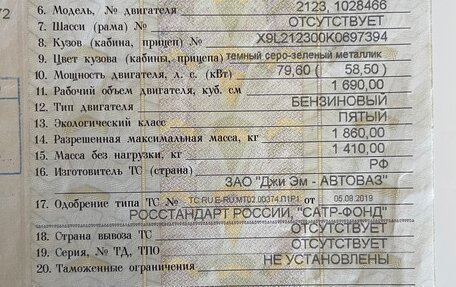 6. Модель, № двигателя 2123, 1028466
7. Шасси (рама) № ОТСУТСТВУЕТ
8. Кузов (кабина, прицеп) № X9L212300K0697394
9. Цвет кузова (кабины, прицепа) темный серо-зеленый металлик
10. Мощность двигателя, л. с. (кВт) 79,60 ( 58,50 )
11. Рабочий объем двигателя, куб. см 1 690,00
12. Тип двигателя БЕНЗИНОВЫЙ
13. Экологический класс ПЯТЫЙ
14. Разрешенная максимальная масса, кг 1 860,00
15. Масса без нагрузки, кг 1 410,00
16. Изготовитель ТС (страна) РФ
ЗАО "Джи Эм - АВТОВАЗ"
17. Одобрение типа ТС № ТС RU Е-RU.МТ02.00374.П1Р1 от 05.08.2019
РОССТАНДАРТ РОССИИ, "САТР-ФОНД"
18. Страна вывоза ТС ОТСУТСТВУЕТ
19. Серия, № ТД, ТПО ОТСУТСТВУЕТ
20. Таможенные ограничения НЕ УСТАНОВЛЕНЫ